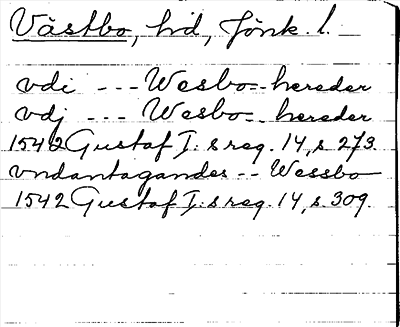 Västbo, hd, Jönk. l.
vdi --- Wesbo hereder
vdj --- Wesbo hereder
1542 Gustaf I:s reg. 14, s. 273.
vndantagandes -- Wessbo
1542 Gustaf I:s reg. 14, s. 309.